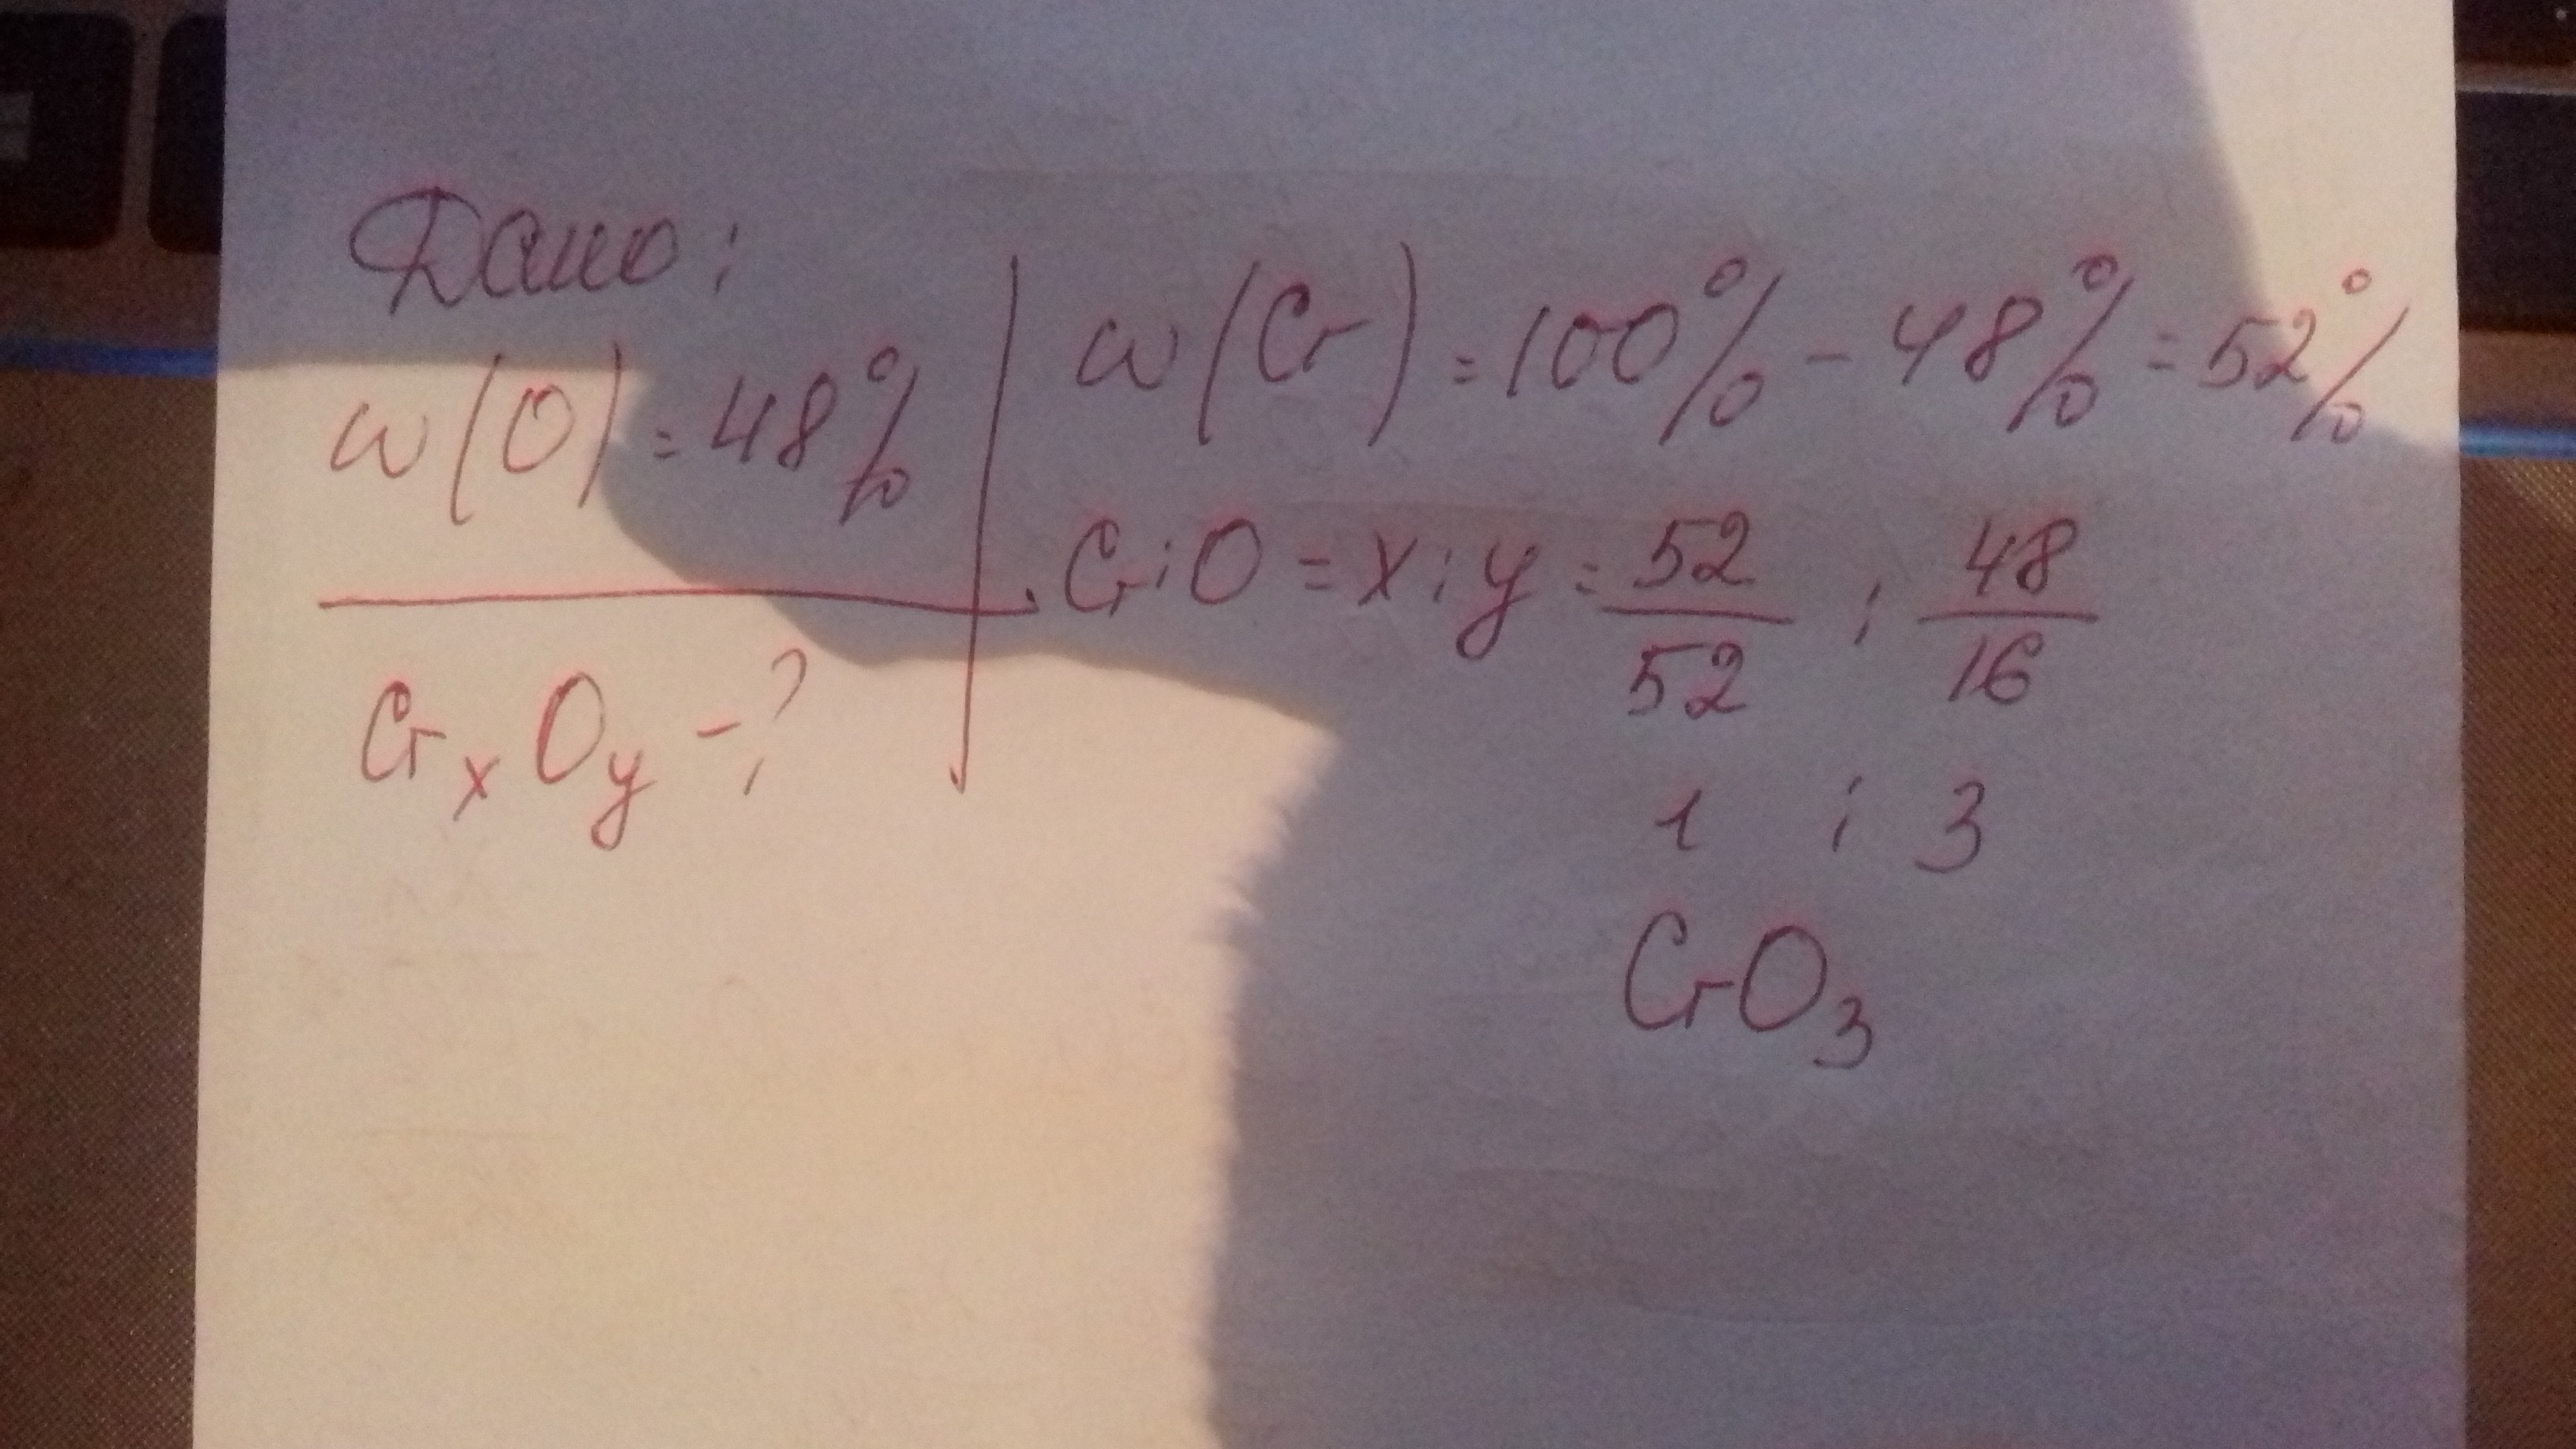 Дано:
w(O) = 48%
CrxOy - ?
w(Cr) = 100% - 48% = 52%
Cr : O = x : y = 52/52 : 48/16
1 : 3
CrO3